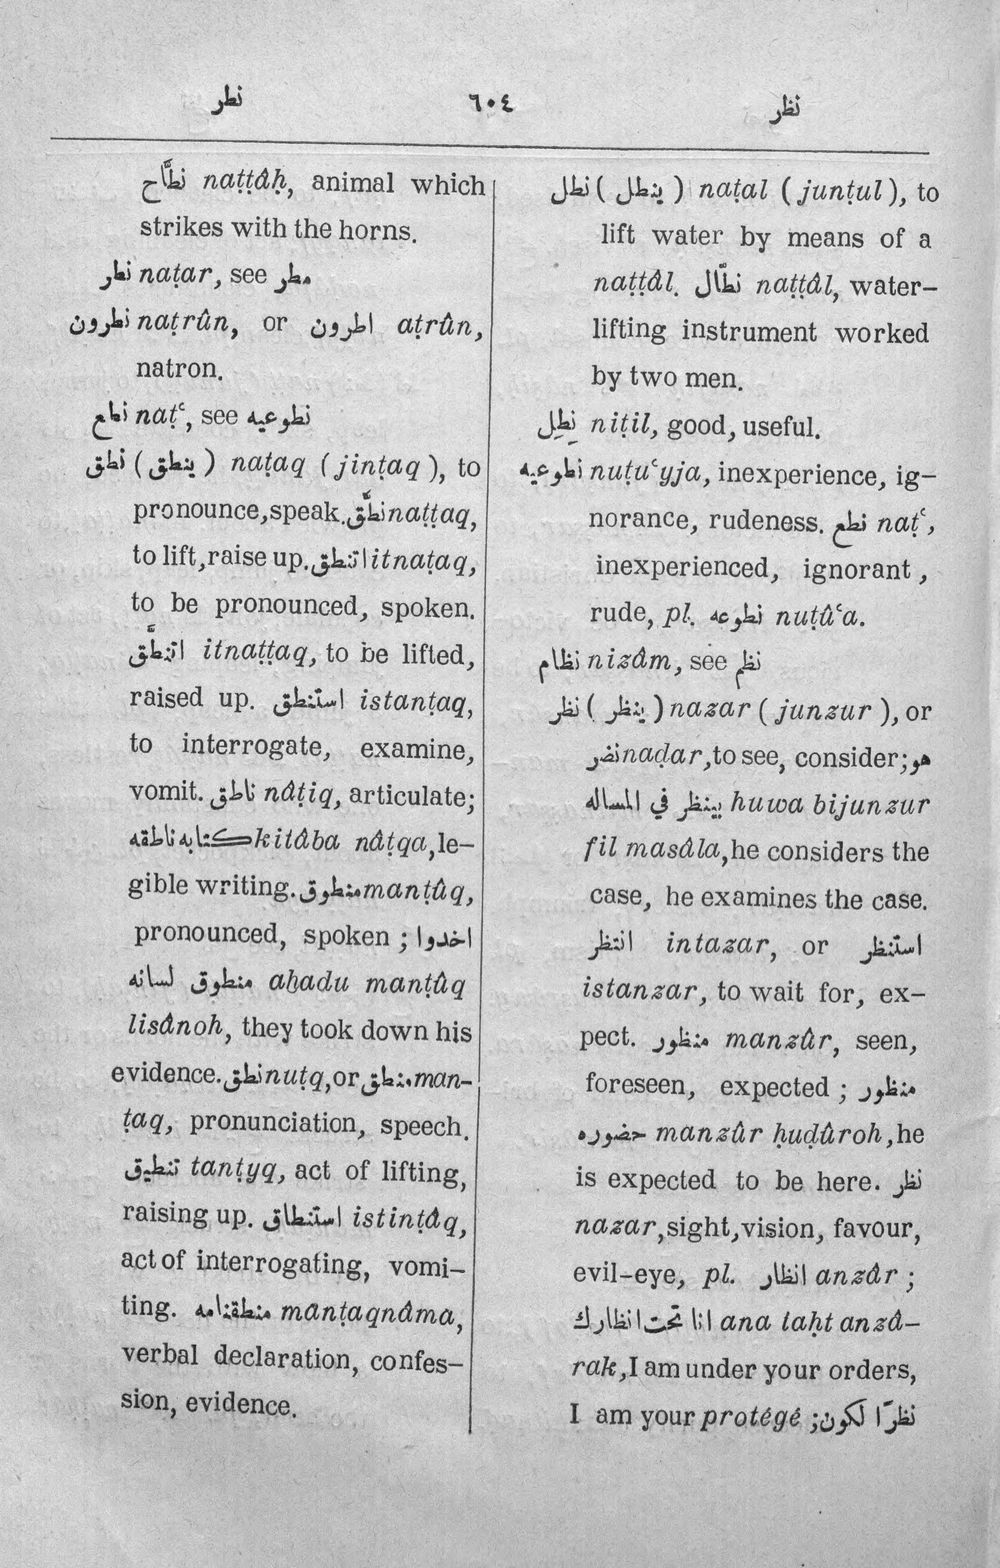 نطر ٦٠٤ نظر
نطَّاح naṭṭâḥ, animal which
strikes with the horns.
نطر naṭar, see مطر
نطرون naṭrûn, or اطرون aṭrûn,
natron.
نطع naṭʿ, see نطوعيه
نطق (ينطق) naṭaq (jinṭaq), to
pronounce, speak. نطَّق naṭṭaq,
to lift, raise up. اتنطق itnaṭaq,
to be pronounced, spoken.
اتنطَّق itnaṭṭaq, to be lifted,
raised up. استنطق istanṭaq,
to interrogate, examine,
vomit. ناطق nâṭiq, articulate;
كتابه ناطقه kitâba nâṭqa, le-
gible writing. منطوق manṭûq,
pronounced, spoken ; اخدوا
منطوق لسانه aḫadu manṭûq
lisânoh, they took down his
evidence. نطق nuṭq, or منطق man-
ṭaq, pronunciation, speech.
تنطيق tanṭyq, act of lifting,
raising up. استنطاق istinṭâq,
act of interrogating, vomi-
ting. منطقنامه manṭaqnâma,
verbal declaration, confes-
sion, evidence.
نطل (ينطل) naṭal (junṭul), to
lift water by means of a
naṭṭâl. نطَّال naṭṭâl, water-
lifting instrument worked
by two men.
نِطِل niṭil, good, useful.
نطوعيه nuṭuʿyja, inexperience, ig-
norance, rudeness. نطع naṭʿ,
inexperienced, ignorant,
rude, pl. نطوعه nuṭûʿa.
نظام nizâm, see نظم
نظر (ينظر) nazar (junzur), or
نضر naḍar, to see, consider; هو
بينظر في المساله huwa bijunzur
fil masâla, he considers the
case, he examines the case.
انتظر intazar, or استنظر
istanzar, to wait for, ex-
pect. منظور manzûr, seen,
foreseen, expected ; منظور
حضوره manzûr ḥuḍûroh, he
is expected to be here. نظر
nazar, sight, vision, favour,
evil-eye, pl. انظار anzâr ;
انا تحت انظارك ana taḥt anzâ-
rak, I am under your orders,
I am your protégé ; نظرًا لكون